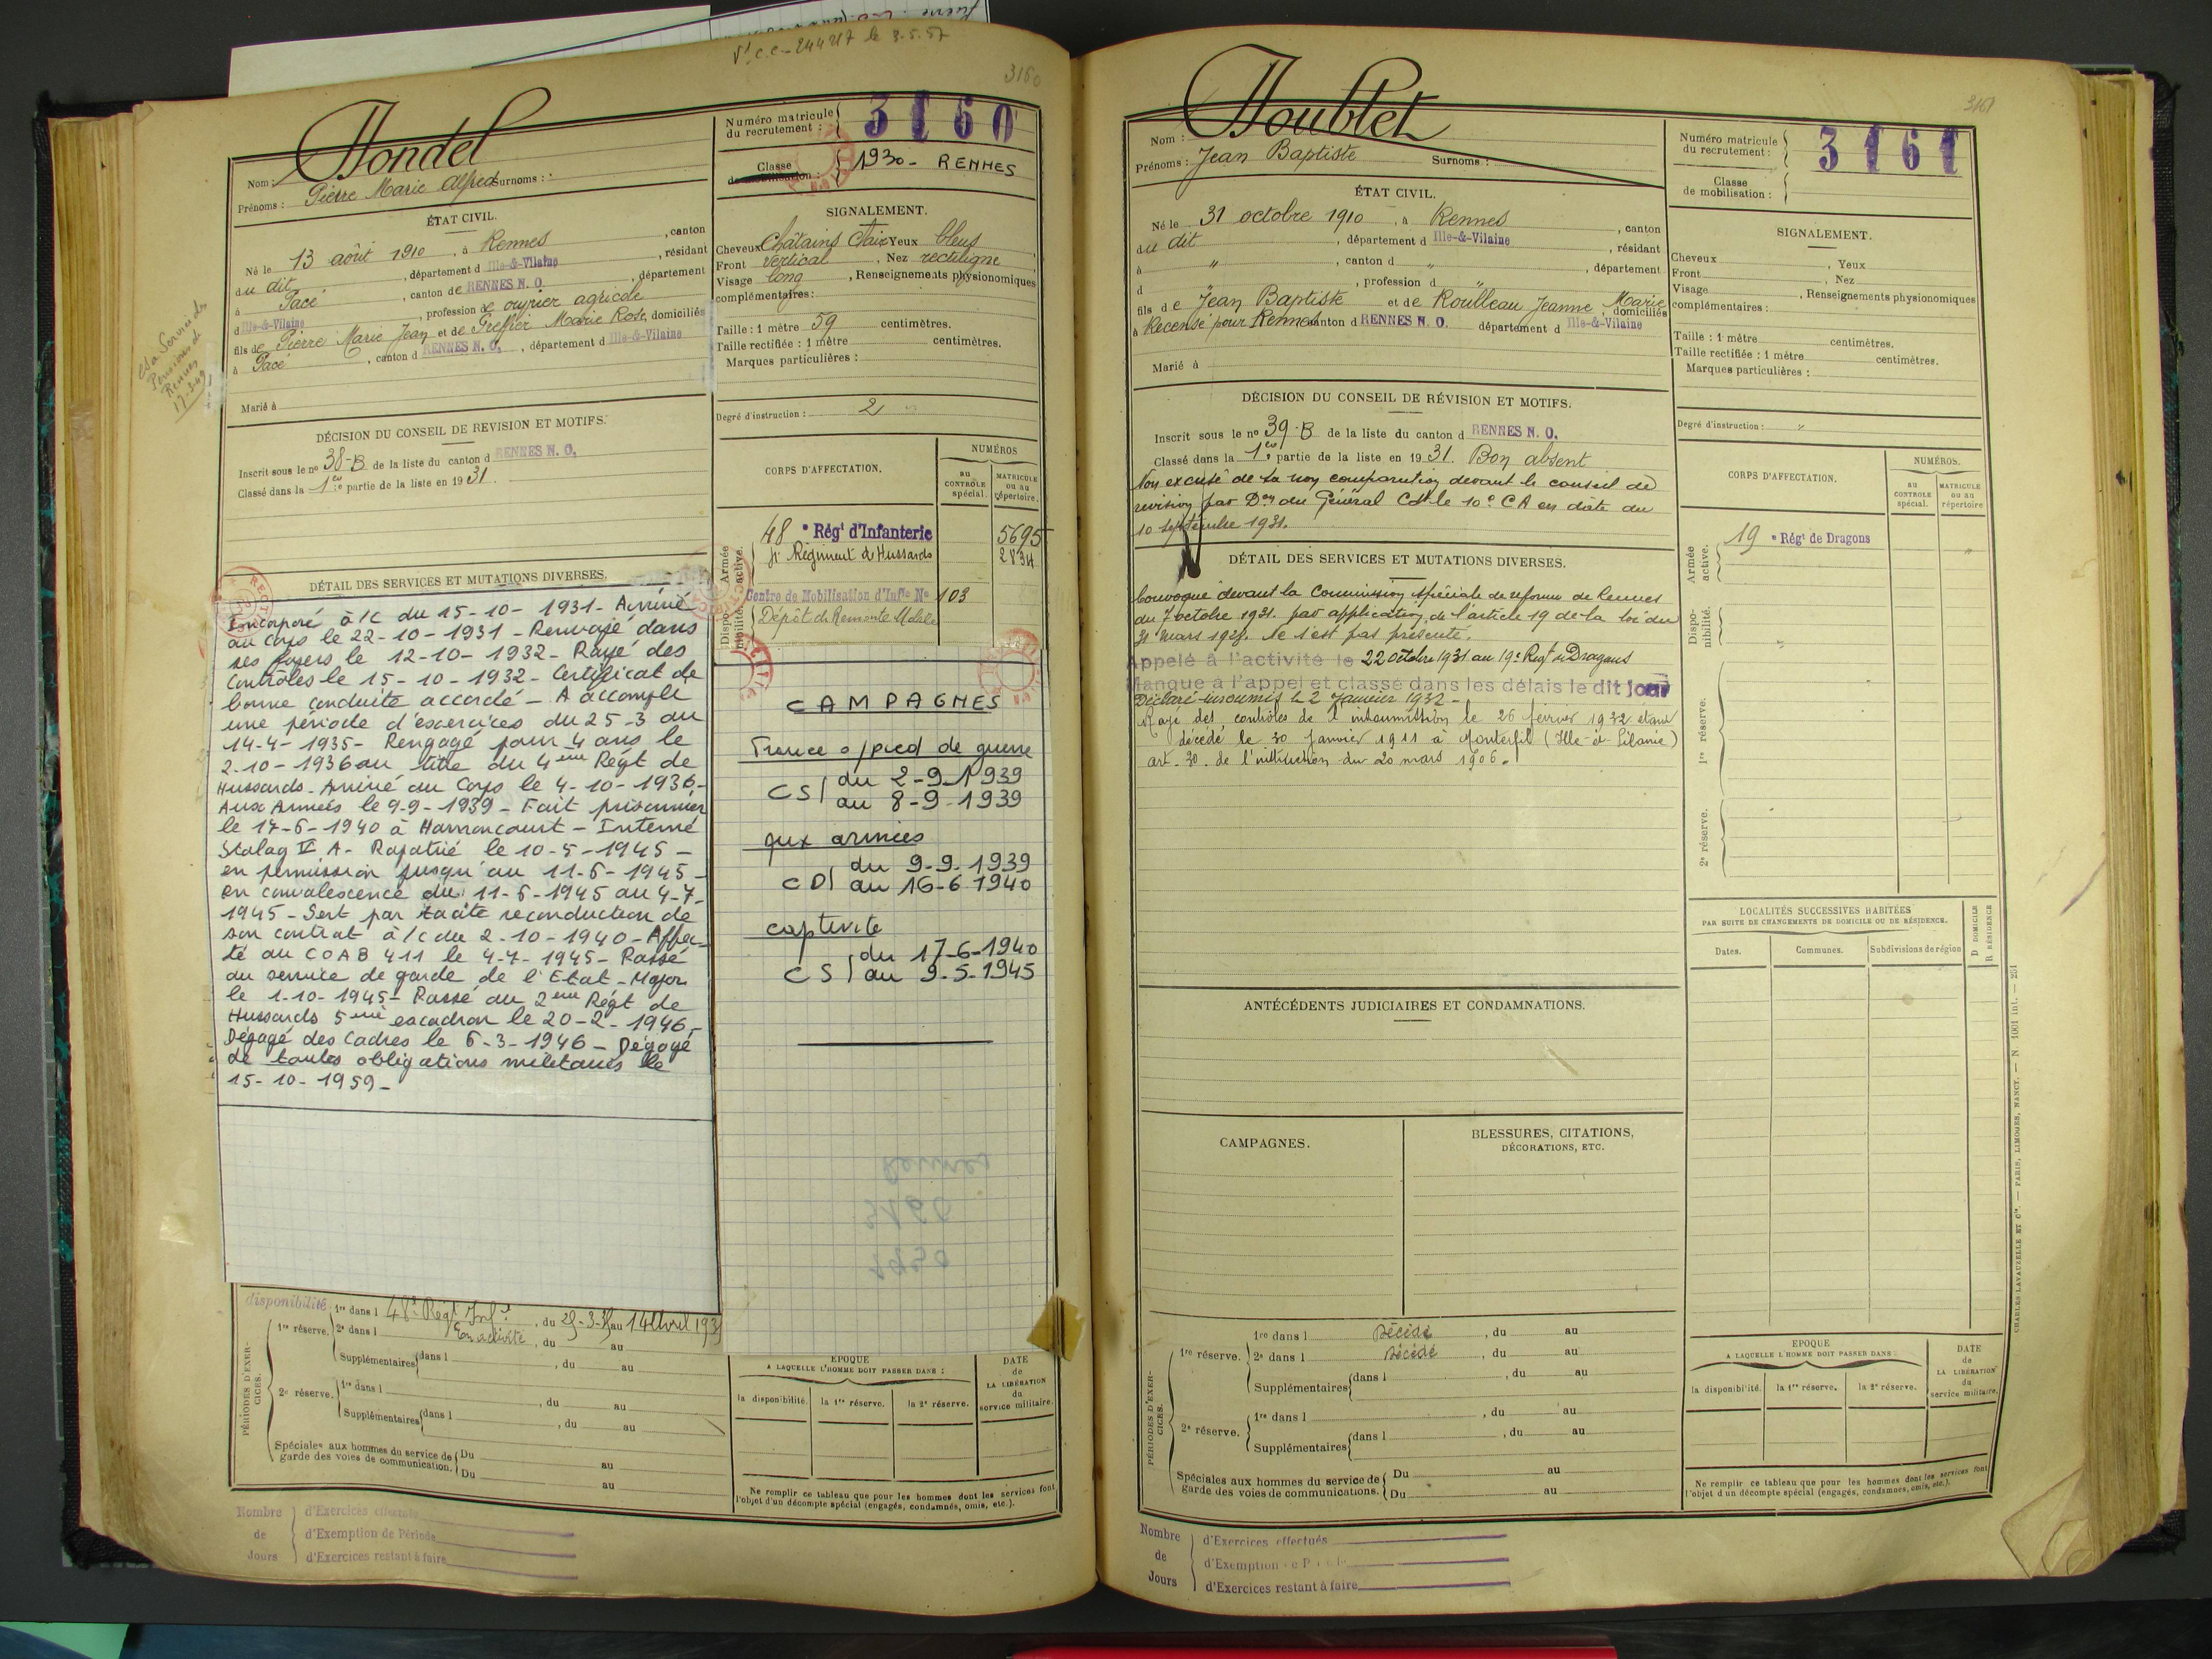 Vt. C.C - 244217 le 3.5.57
3160
Hondel
Nom :
Prénoms : Pierre Marie Alfred Surnoms :
ÉTAT CIVIL.
Né le 13 août 1910, à Rennes, canton
du dit, département d Ille-&-Vilaine, résidant
à Pacé, canton de RENNES N. O., département
d Ille-&-Vilaine, profession de ouvrier agricole
fils de Pierre Marie Jean et de Greffier Marie Rose, domiciliés
à Pacé, canton d RENNES N. O., département d Ille-&-Vilaine
Marié à
DÉCISION DU CONSEIL DE REVISION ET MOTIFS.
Inscrit sous le no 38-B de la liste du canton d RENNES N. O.
Classé dans la 1re partie de la liste en 1931.
DÉTAIL DES SERVICES ET MUTATIONS DIVERSES.
Incorporé à/c du 15-10-1931- Arrivé
au corps le 22-10-1931 - Renvoyé dans
ses foyers le 12-10-1932- Rayé des
Contrôles le 15-10-1932- Certificat de
bonne conduite accordé - A accompli
une période d'exercices du 25-3 au
14-4-1935- Rengagé pour 4 ans le
2-10-1936 au titre du 4ème Régt de
Hussards- Arrivé au Corps le 4-10-1936-
Aux Armées le 9-9-1939- Fait prisonnier
le 17-6-1940 à Harnoncourt - Interné
Stalag IV A- Rapatrié le 10-5-1945 -
en permission jusqu'au 11-6-1945 -
en convalescence du 11-6-1945 au 4-7-
1945 - Sert par tacite reconduction de
son contrat à/c du 2-10-1940- Affec-
té au COAB 411 le 4-7-1945- Passé
au service de garde de l'Etat-Major
le 1-10-1945- Passé au 2ème Régt de
Hussards 5ème escadron le 20-2-1946-
Dégagé des Cadres le 6-3-1946 - Dégagé
de toutes obligations militaires le
15-10-1959-
disponibilité
PÉRIODES D'EXERCICES.
1re réserve. 1re dans l 48e Régt Infie, du 25-3-35 au 14 Avril 1935
2e dans l En activité, du au
Supplémentaires dans l , du au
2e réserve. 1re dans l , du au
Supplémentaires dans l , du au
Spéciales aux hommes du service de garde des voies de communication. Du au
Du au
Nombre de Jours
d'Exercices effectués
d'Exemption de Période
d'Exercices restant à faire
Numéro matricule du recrutement : 3160
Classe de mobilisation : 1930 - RENNES
SIGNALEMENT.
Cheveux Châtains clair Yeux bleus
Front vertical, Nez rectiligne
Visage long, Renseignements physionomiques
complémentaires :
Taille : 1 mètre 59 centimètres.
Taille rectifiée : 1 mètre centimètres.
Marques particulières :
Degré d'instruction : 2
CORPS D'AFFECTATION.
NUMÉROS
au CONTROLE spécial.
MATRICULE ou au répertoire.
Armée active.
48e Régt d'Infanterie 5695
4e Régiment de Hussards 2834
Disponibilité.
Centre de Mobilisation d'Inf.ie No 103
Dépôt de Remonte Mobile
CAMPAGNES
France s/pied de guerre
CS du 2-9-1939
au 8-9-1939
aux armées
CD du 9-9-1939
au 16-6-1940
captivité
CS du 17-6-1940
au 9-5-1945
Rennes
3160
1930
EPOQUE
A LAQUELLE L'HOMME DOIT PASSER DANS :
la disponibilité.
la 1re réserve.
la 2e réserve.
DATE de LA LIBÉRATION du service militaire.
Ne remplir ce tableau que pour les hommes dont les services font
l'objet d'un décompte spécial (engagés, condamnés, omis, etc.).
3161
Houblet
Nom :
Prénoms : Jean Baptiste Surnoms :
ÉTAT CIVIL.
Né le 31 octobre 1910, à Rennes, canton
du dit, département d Ille-&-Vilaine, résidant
à ", canton d ", département
d ", profession d "
fils de Jean Baptiste et de Roulleau Jeanne Marie, domiciliés
à Recensé pour Rennes canton d RENNES N. O. département d Ille-&-Vilaine
Marié à
DÉCISION DU CONSEIL DE RÉVISION ET MOTIFS.
Inscrit sous le no 39-B de la liste du canton d RENNES N. O.
Classé dans la 1re partie de la liste en 1931. Bon absent
Non excusé de sa non comparution devant le conseil de
revision par Don du Général Ct le 10e CA en date du
10 septembre 1931.
DÉTAIL DES SERVICES ET MUTATIONS DIVERSES.
Convoqué devant la Commission spéciale de reforme de Rennes
du 7 octobre 1931. par application de l'article 19 de la loi du
31 mars 1928. Ne s'est pas présenté.
Appelé à l'activité le 22 octobre 1931 au 19e Regt de Dragons
Manque à l'appel et classé dans les délais le dit jour
Déclaré insoumis le 2 Janvier 1932 -
Rayé des contrôles de l'insoumission le 26 février 1932 étant
décédé le 30 Janvier 1911 à Monterfil (Ille-et-Vilaine)
art. 30. de l'instruction du 20 mars 1906.
ANTÉCÉDENTS JUDICIAIRES ET CONDAMNATIONS.
CAMPAGNES.
BLESSURES, CITATIONS,
DÉCORATIONS, ETC.
PÉRIODES D'EXERCICES.
1re réserve. 1re dans l Décédé, du au
2e dans l Décédé, du au
Supplémentaires dans l , du au
2e réserve. 1re dans l , du au
Supplémentaires dans l , du au
Spéciales aux hommes du service de garde des voies de communications. Du au
Du au
Nombre de Jours
d'Exercices effectués
d'Exemption
d'Exercices restant à faire
Numéro matricule du recrutement : 3161
Classe de mobilisation :
SIGNALEMENT.
Cheveux , Yeux
Front , Nez
Visage , Renseignements physionomiques
complémentaires :
Taille : 1 mètre centimètres.
Taille rectifiée : 1 mètre centimètres.
Marques particulières :
Degré d'instruction : "
CORPS D'AFFECTATION.
NUMÉROS.
au CONTROLE spécial.
MATRICULE ou au répertoire
Armée active.
19e Régt de Dragons "
Disponibilité. "
1re réserve.
2e réserve.
LOCALITÉS SUCCESSIVES HABITÉES
PAR SUITE DE CHANGEMENTS DE DOMICILE OU DE RÉSIDENCE.
Dates.
Communes.
Subdivisions de région
D DOMICILE
R RÉSIDENCE
EPOQUE
A LAQUELLE L'HOMME DOIT PASSER DANS :
la disponibilité.
la 1re réserve.
la 2e réserve.
DATE de LA LIBÉRATION du service militaire.
Ne remplir ce tableau que pour les hommes dont les services font
l'objet d'un décompte spécial (engagés, condamnés, omis, etc.).
CHARLES LAVAUZELLE ET Cie. — PARIS, LIMOGES, NANCY. — N 1001 int. — 251